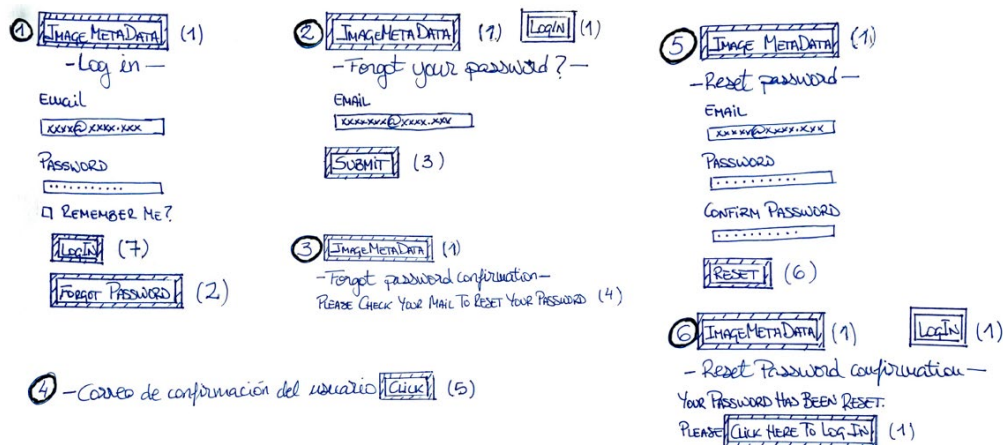 1 IMAGEMETADATA (1)
- Log in -
Email
xxxx@xxxx.xxx
PASSWORD
...........
REMEMBER ME?
LOGIN (7)
FORGOT PASSWORD (2)
2 IMAGEMETADATA (1) LOGIN (1)
- Forgot your password? -
EMAIL
xxxxxxx@xxxx.xxx
SUBMIT (3)
3 IMAGEMETADATA (1)
- Forgot password confirmation -
PLEASE CHECK YOUR MAIL TO RESET YOUR PASSWORD (4)
4 - Correo de confirmación del usuario CLICK (5)
5 IMAGE METADATA (1)
- Reset password -
EMAIL
xxxxx@xxxx.xxx
PASSWORD
...........
CONFIRM PASSWORD
..........
RESET (6)
6 IMAGEMETADATA (1) LOGIN (1)
- Reset Password confirmation -
YOUR PASSWORD HAS BEEN RESET.
PLEASE CLICK HERE TO LOG IN (1)